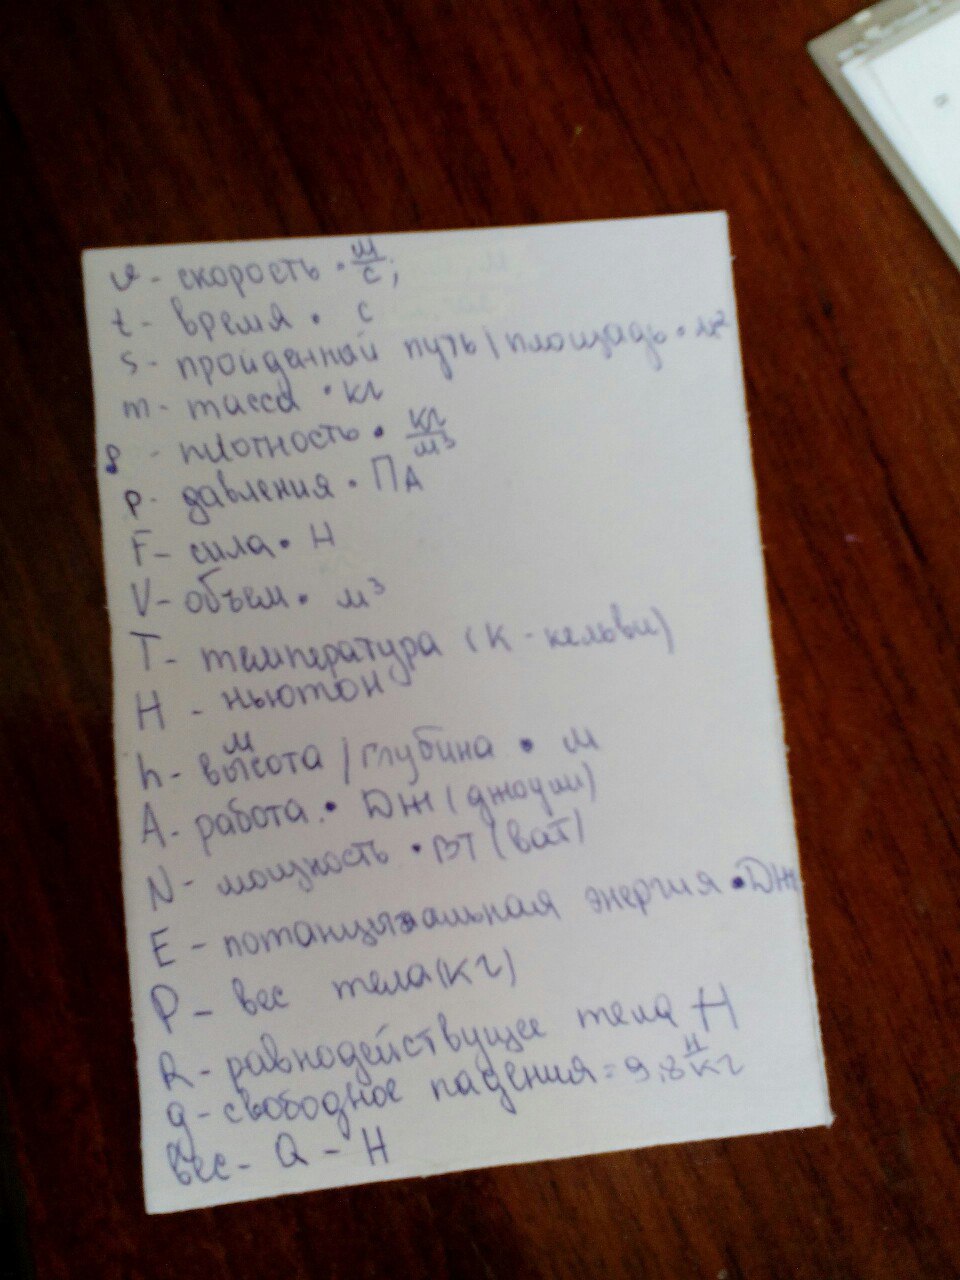 υ - скорость · м/с;
t - время · с
S - пройденный путь / площадь · м²
m - масса · кг
ρ - плотность · кг/м³
р - давления · ПА
F - сила · Н
V - объем · м³
T - температура (К - кельви)
Н - ньютон
h - высота / глубина · м
A - работа · Дж (джоули)
N - мощность · ВТ (ват)
E - потанцыальная энергия · Дж
P - вес тела (кг)
R - равнодействущее тела Н
g - свободное падения = 9.8 н/кг
вес - Q - Н